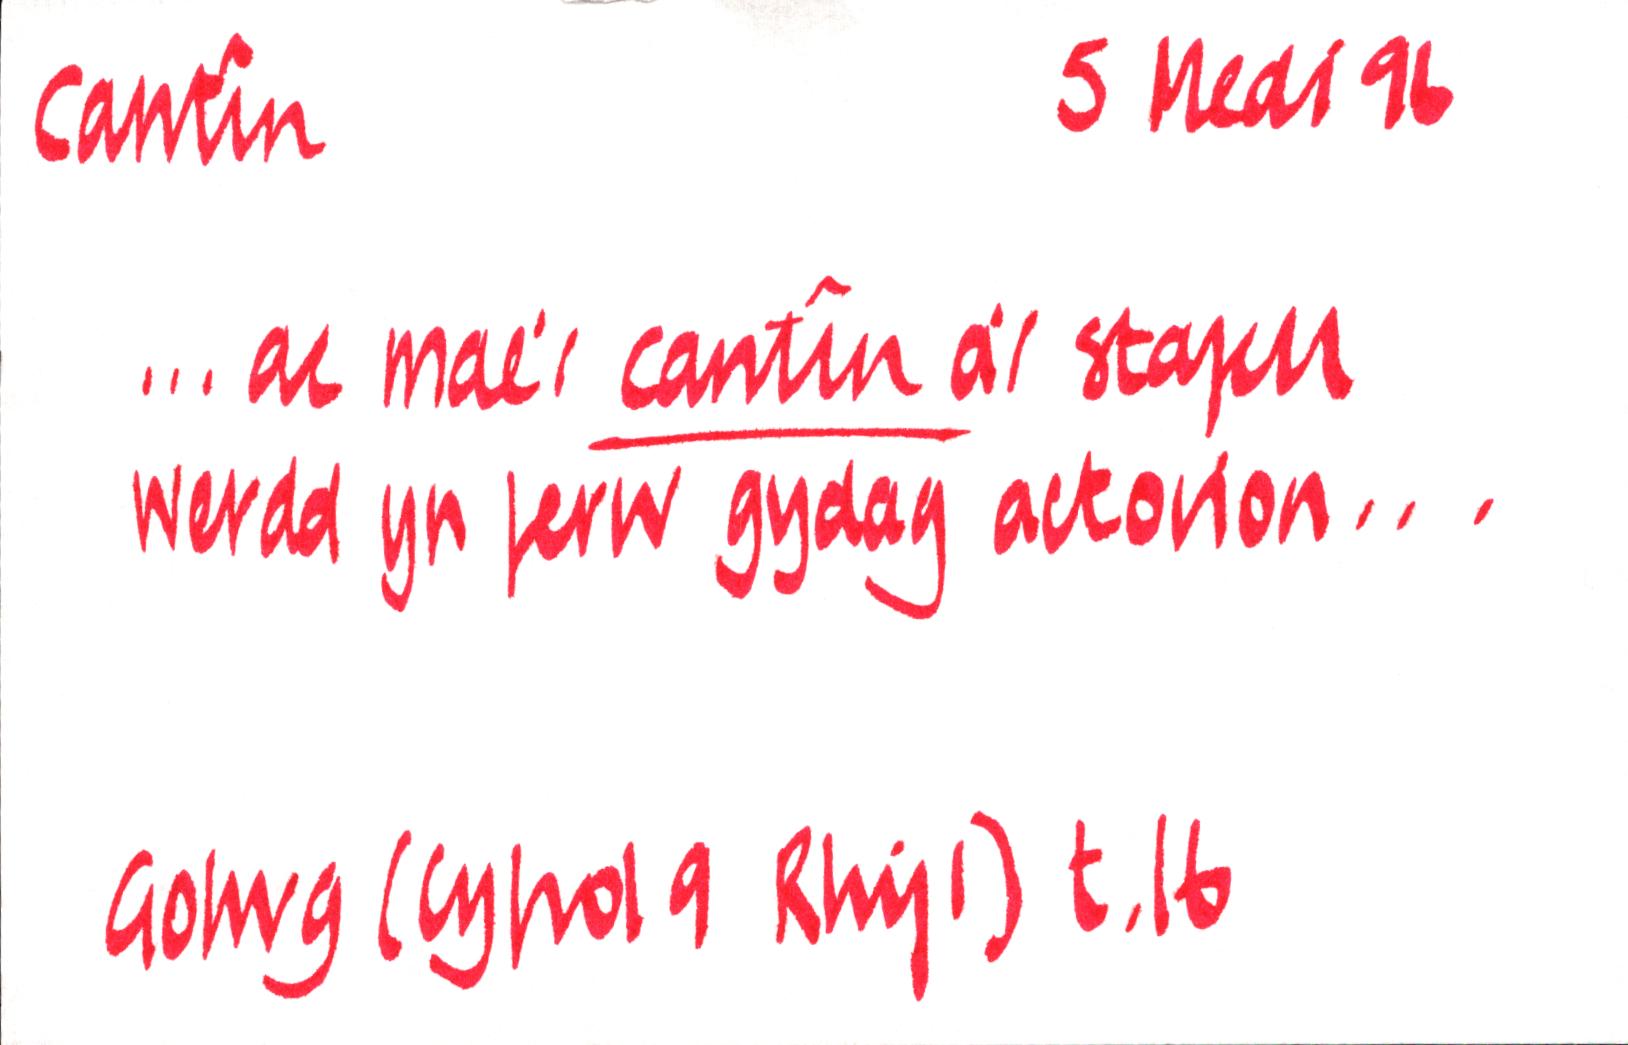 Cantîn 5 Medi 96
... ac mae'r cantîn a'r stafell
werdd yn ferw gydag actorion....
Golwg (Cyfrol 9 Rhif 1) t.16